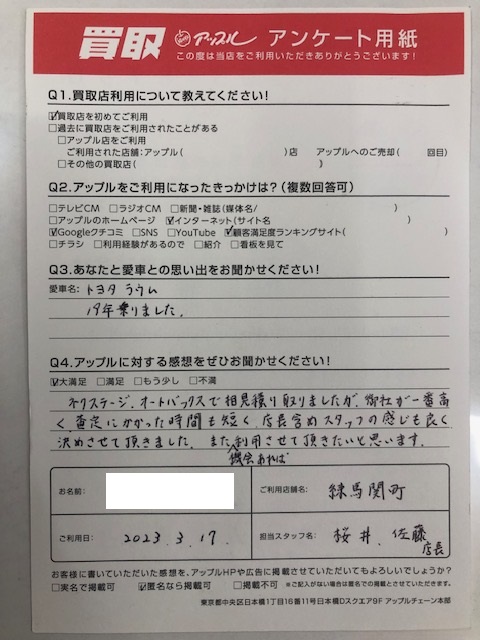 買取 アップル アンケート用紙
この度は当店をご利用いただきありがとうございます！
Q1.買取店利用について教えてください！
☑買取店を初めてご利用
□過去に買取店をご利用されたことがある
□アップル店をご利用
ご利用された店舗：アップル（　　　）店　アップルへのご売却（　　回目）
□その他の買取店（　　　）
Q2.アップルをご利用になったきっかけは？（複数回答可）
□テレビCM □ラジオCM □新聞・雑誌（媒体名/　　　）
□アップルのホームページ ☑インターネット（サイト名　　　）
☑Googleクチコミ □SNS □YouTube ☑顧客満足度ランキングサイト（　　　）
□チラシ □利用経験があるので □紹介 □看板を見て
Q3.あなたと愛車との思い出をお聞かせください！
愛車名：トヨタ ラウム
19年乗りました.
Q4.アップルに対する感想をぜひお聞かせください！
☑大満足 □満足 □もう少し □不満
ネクステージ、オートバックスで相見積り取りましたが、御社が一番高
く、査定にかかった時間も短く、店長含めスタッフの感じも良く
決めさせて頂きました。また機会あれば利用させて頂きたいと思います。
お名前：
ご利用店舗名：練馬関町
ご利用日：2023.3.17.
担当スタッフ名：桜井、佐藤店長
お客様に書いていただいた感想を、アップルHPや広告に掲載させていただいてもよろしいでしょうか？
□実名で掲載可 ☑匿名なら掲載可 □掲載不可 ※ご記入がない場合は匿名での掲載とさせていただきます。
東京都中央区日本橋1丁目16番11号日本橋Dスクエア9F アップルチェーン本部